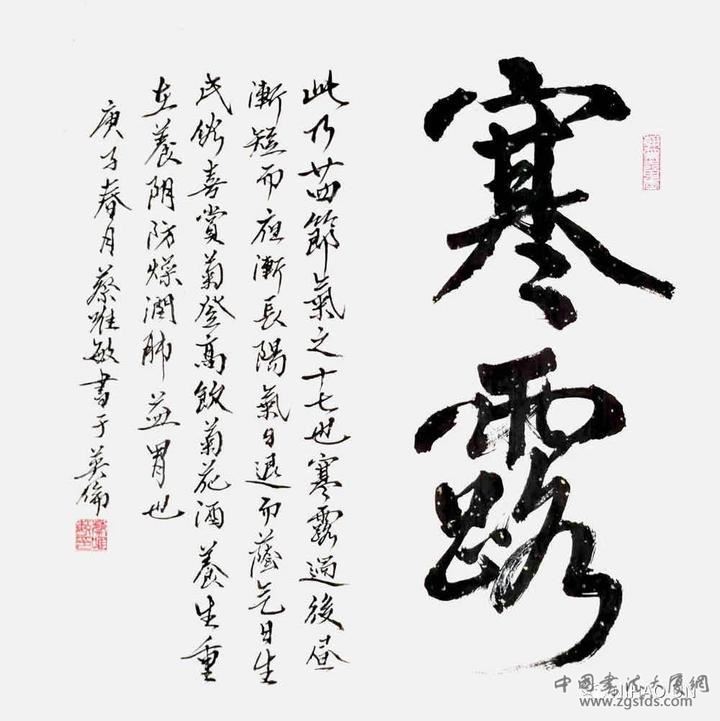 寒露
此乃廿四節氣之十七也寒露過後昼
漸短而夜漸長陽氣日退而蔭气日生
民俗喜賞菊登高飲菊花酒養生重
在養阴防燥潤肺益胃也
庚子春月蔡唯敏書于英倫
中國書法大厦網
www.zgsfds.com